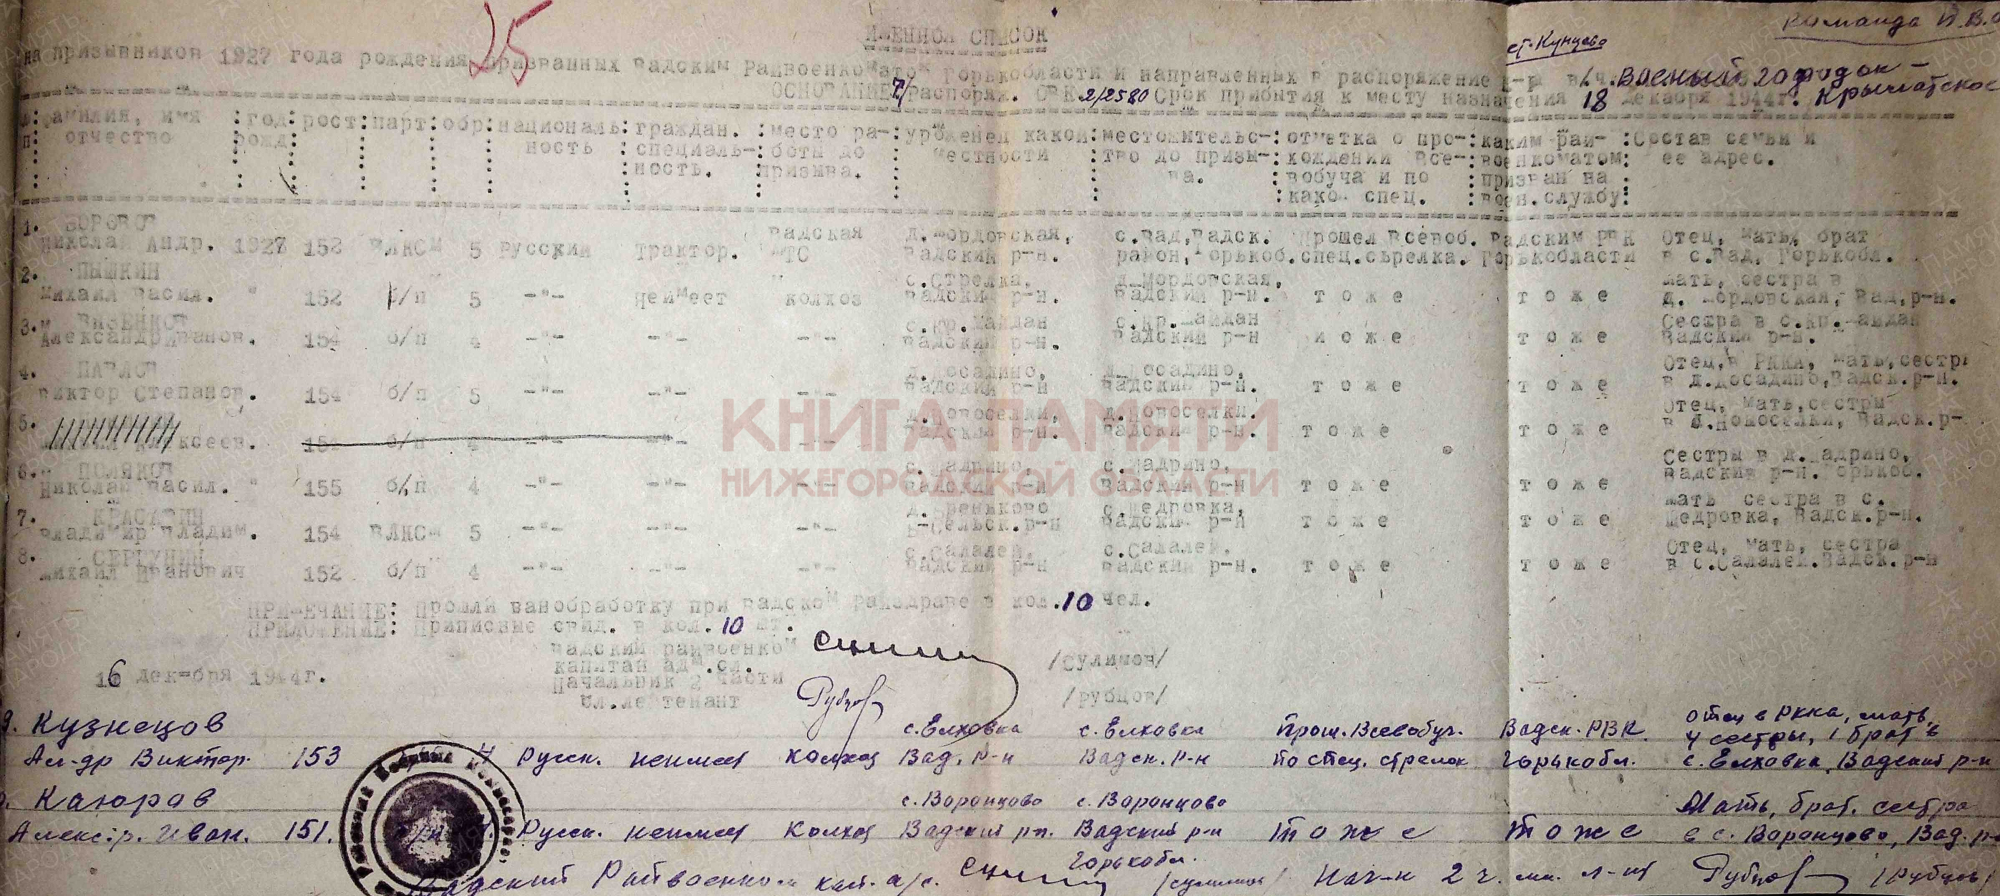 Команда Н.В.О
ст. Кунцево
25
ИМЕННОЙ СПИСОК
на призывников 1927 года рождения призванных Вадским Райвоенкоматом Горькобласти и направленных в распоряжение к-ра в/ч. Военый городок - Крылатское
ОСНОВАНИЕ: Распоряж. ОВК 2/2580 Срок прибытия к месту назначения 18 декабря 1944г.
фамилия, имя отчество : год рожд : рост : парт : обр : националь-ность : граждан. специаль-ность. : место ра-боты до призыва. : уроженец какой местности : местожительс-тво до призы-ва. : отметка о про-хождении Все-вобуча и по како. спец. : каким рай-военкоматом призван на воен. службу : Состав семьи и ее адрес.
1. БОРОВОВ Вадская д. Мордовская, с.Вад,Вадск. Прошел Всевоб. Вадским РВК Отец, мать, брат
Николай Андр. 1927 152 ВЛКСМ 5 Русский Трактор. МТС Вадский р-н. район, Горькоб. спец.стрелка. Горькобласти в с.Вад, Горькобл.
2. ПЫШКИН с.Стрелка, д.Мордовская, мать, сестра в
Михаил Васил. " 152 б/п 5 -"- Неимеет колхоз Вадский р-н. Вадский р-н. тоже тоже д. Мордовская, Вад,р-н.
3. с.Кр.Майдан с.Кр.Майдан Сестра в с.Кр.Майдан
Александр Иванов. 154 б/п 4 -"- -"- -"- Вадский р-н. Вадский р-н тоже тоже Вадский р-н.
4. ПАВЛОВ д.Досадино, д.Досадино, Отец,в РККА, мать,сестры
Виктор Степанов. 154 б/п 5 -"- -"- -"- Вадский р-н Вадский р-н. тоже тоже в д.Досадино,Вадск.р-н.
5. д.Новоселки, д.Новоселки. Отец, мать,сестры
ксеев. 151 б/п 4 -"- -"- -"- Вадский р-н. Вадский р-н. тоже тоже в д.Новоселки, Вадск.р-
6. ПОЛЯКОВ с.Шадрино, с.Шадрино, Сестры в д.Шадрино,
Николай Васил. " 155 б/п 4 -"- -"- -"- Вадский р-н Вадский р-н. тоже тоже Вадский р-н. Горькоб.
7. КРАСАВИН с.Щедровка, мать сестра в с.
Владимир Владим. 154 ВЛКСМ 5 -"- -"- -"- Вадский р-н тоже тоже Щедровка, Вадск.р-н.
8. СЕРГУНИН с.Салалей, с.Салалей, Отец, мать, сестра
Михаил Иванович 152 б/п 4 -"- -"- -"- Вадский р-н Вадский р-н. тоже тоже в с.Салалей.Вадск.р-н
ПРИМЕЧАНИЕ: Прошли санобработку при Вадском райздраве в кол. 10 чел.
ПРИЛОЖЕНИЕ: Приписные свид. в кол. 10 шт.
Вадский райвоенком
капитан адм.сл. /Сулимов/
16 декабря 1944г. Начальник 2 части
мл.лейтенант Рубцов /Рубцов/
9. Кузнецов с. Елховка с. Елховка прош. Всевобуч. Вадск. РВК отец в РККА, мать,
Ал-др Виктор. 153 4 Русск. неимеет колхоз Вад. р-н Вадск. р-н по спец. стрелок Горькобл. 4 сестры, 1 брат в с. Елховка, Вадский р-н
Каюров с. Воронцово с. Воронцово Мать, брат. сестра
Алекс.р. Иван. 151. 4. Русск. неимеет колхоз Вадский р-н. Вадский р-н Горькобл. тоже тоже в с. Воронцово, Вад. р-н
Вадский Райвоенком кап. а/с. /Сулимов/ Нач-к 2 ч. мл. л-нт Рубцов /Рубцов/
КНИГА ПАМЯТИ
НИЖЕГОРОДСКОЙ ОБЛАСТИ
ПАМЯТЬ НАРОДА